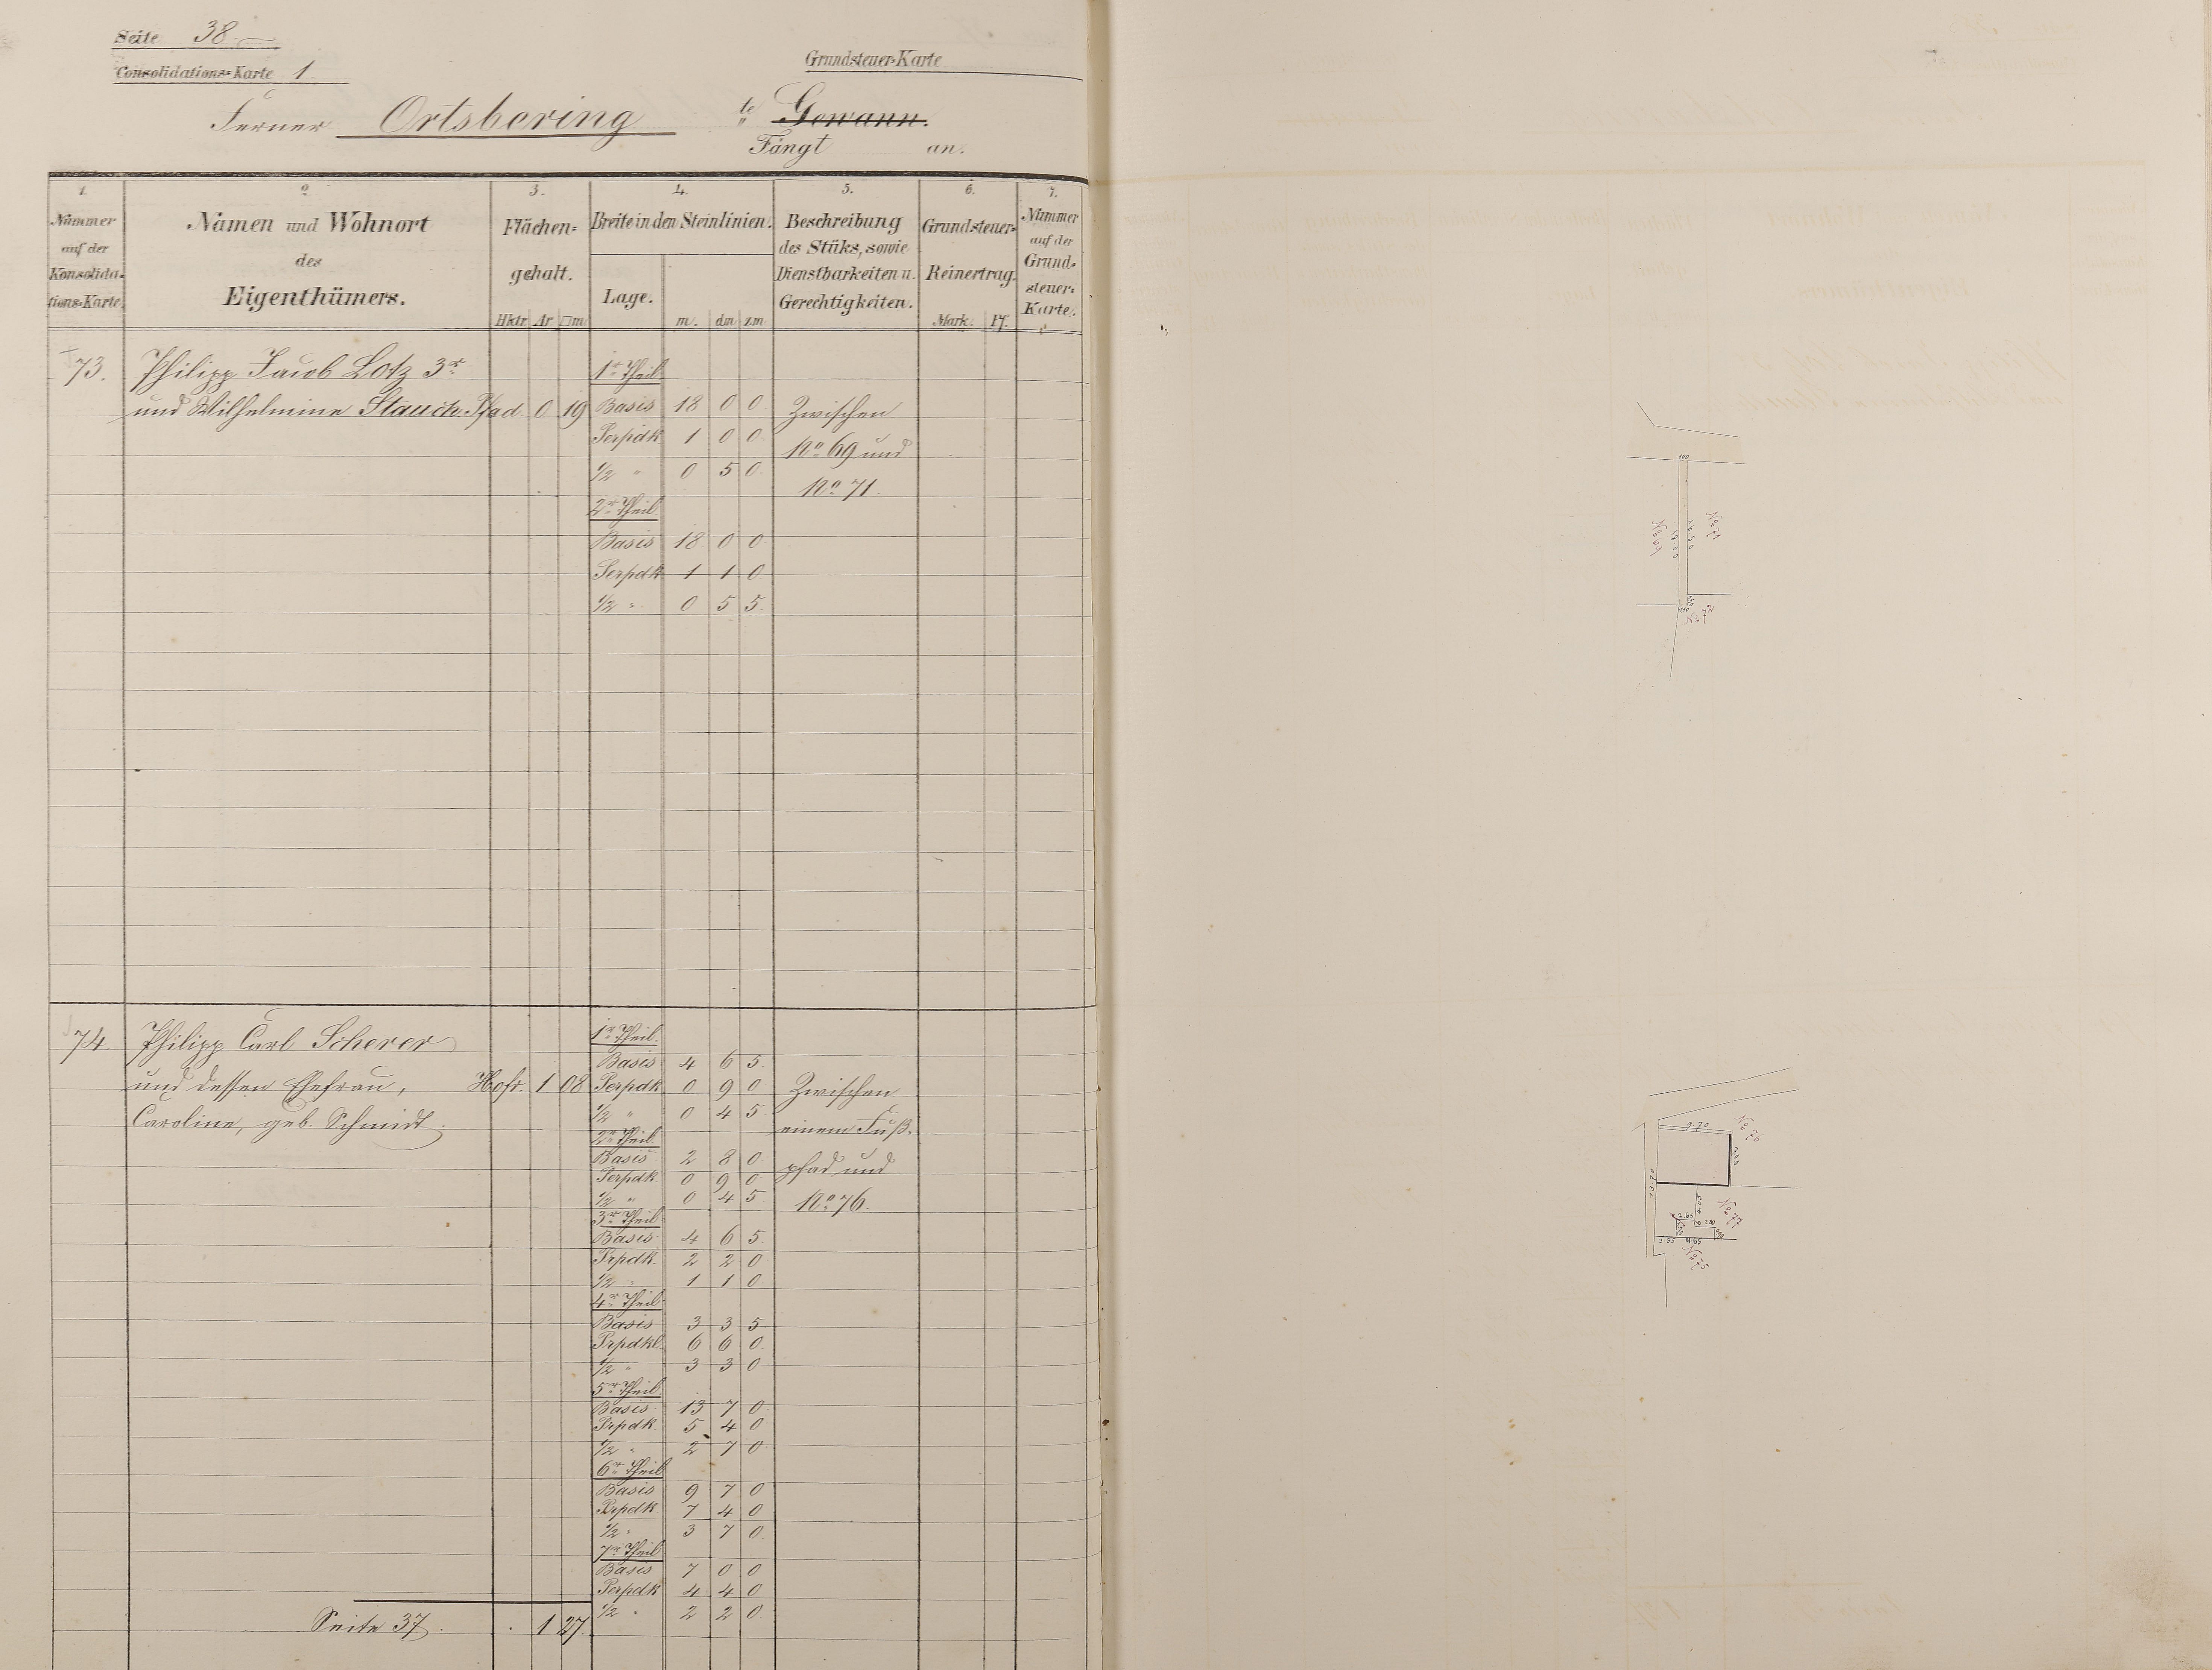 Seite 38.
Consolidations=Karte 1.
Grundsteuer=Karte
Ferner Ortsbering te Gewann.
"
Fängt an.
1. 2 3. 4. 5. 6. 7.
Nummer
auf der
Konsolida=
tions=Karte.
Namen und Wohnort
des
Eigenthümers.
Flächen=
gehalt.
Hktr. Ar □m
Breite in den Steinlinien.
Lage. m. dm zm
Beschreibung
des Stüks, sowie
Dienstbarkeiten u.
Gerechtigkeiten.
Grundsteuer=
Reinertrag.
Mark. Pf.
Nummer
auf der
Grund=
steuer=
Karte.
73. Philipp Jacob Lotz 3r 1r Theil
und Wilhelmine Stauch. Pfad 0 19 Basis 18 0 0 Zwischen
Perpdk 1 0 0 No 69 und
1/2 " 0 5 0 No 71.
2r Theil
Basis 18 0 0
Perpdk 1 1 0
1/2 " 0 5 5
74. Philipp Carl Scherer 1r Theil
Basis 4 6 5
und dessen Ehefrau, Hofr. 1 08 Perpdk 0 9 0 Zwischen
Caroline, geb. Schmidt. 1/2 " 0 4 5 einem Fuß=
2r Theil
Basis 2 8 0 pfad und
Perpdk 0 9 0
1/2 " 0 4 5 No 76.
3r Theil
Basis 4 6 5
Prpdk. 2 2 0
1/2 " 1 1 0
4r Theil
Basis 3 3 5
Prpdkl. 6 6 0
1/2 " 3 3 0
5r Theil
Basis 13 7 0
Prpdk. 5 4 0
1/2 " 2 7 0
6r Theil
Basis 9 7 0
Prpdk 7 4 0
1/2 " 3 7 0
7r Theil
Basis 7 0 0
Perpdk 4 4 0
1/2 " 2 2 0
Seite 37. . 1 27.
100
No 69
No 71
110
No 72
9.70
No 70
13.70
4.05
No 77
2.65
2.00
3.35 4.65
No 75